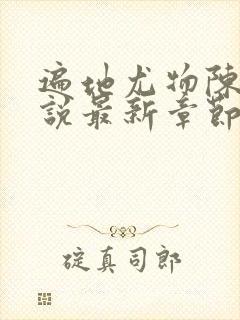 遍地尤物陈
說最新章節
碇真司郎